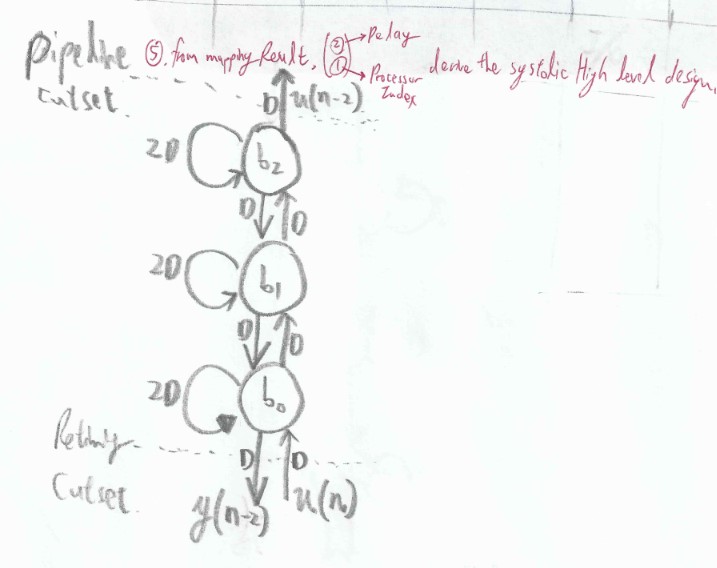 Pipeline ⑤. from mapping Result, (② → Delay
① → Processor Index) derive the systolic High level design.
cutset.
D u(n-2)
2D b₂
D D
2D b₁
D D
2D b₀
Retiming
D D
Cutset.
y(n-2) u(n)